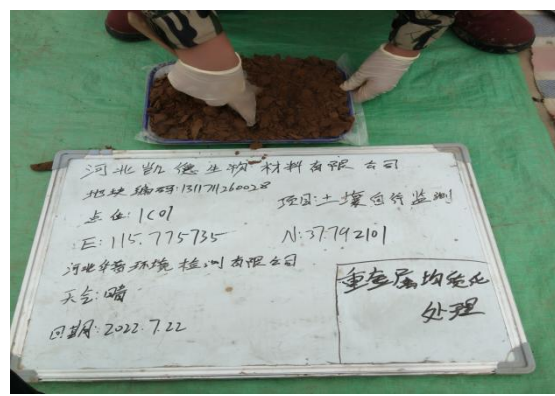 河北凯德生物材料有限公司
地块编码:1311711260028
项目:土壤自行监测
点位:1C01
E:115.775735
N:37.792101
河北华普环境检测有限公司
天气:晴
日期:2022.7.22
重金属均质化
处理